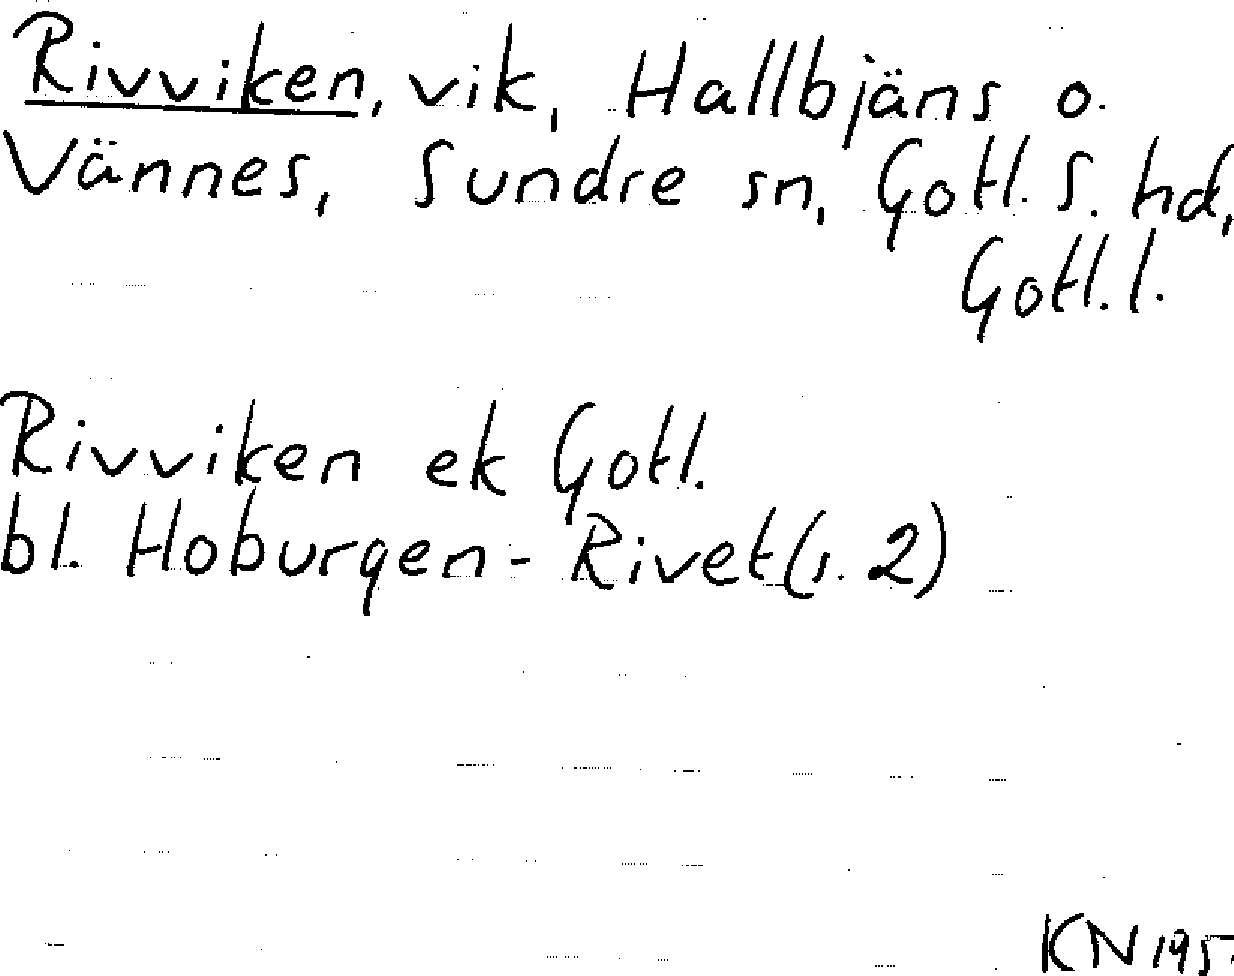 Rivviken, vik, Hallbjäns o.
Vännes, Sundre sn, Gotl. S. hd,
Gotl. l.
Rivviken ek Gotl.
bl. Hoburgen - Rivet (s. 2)
KN 195